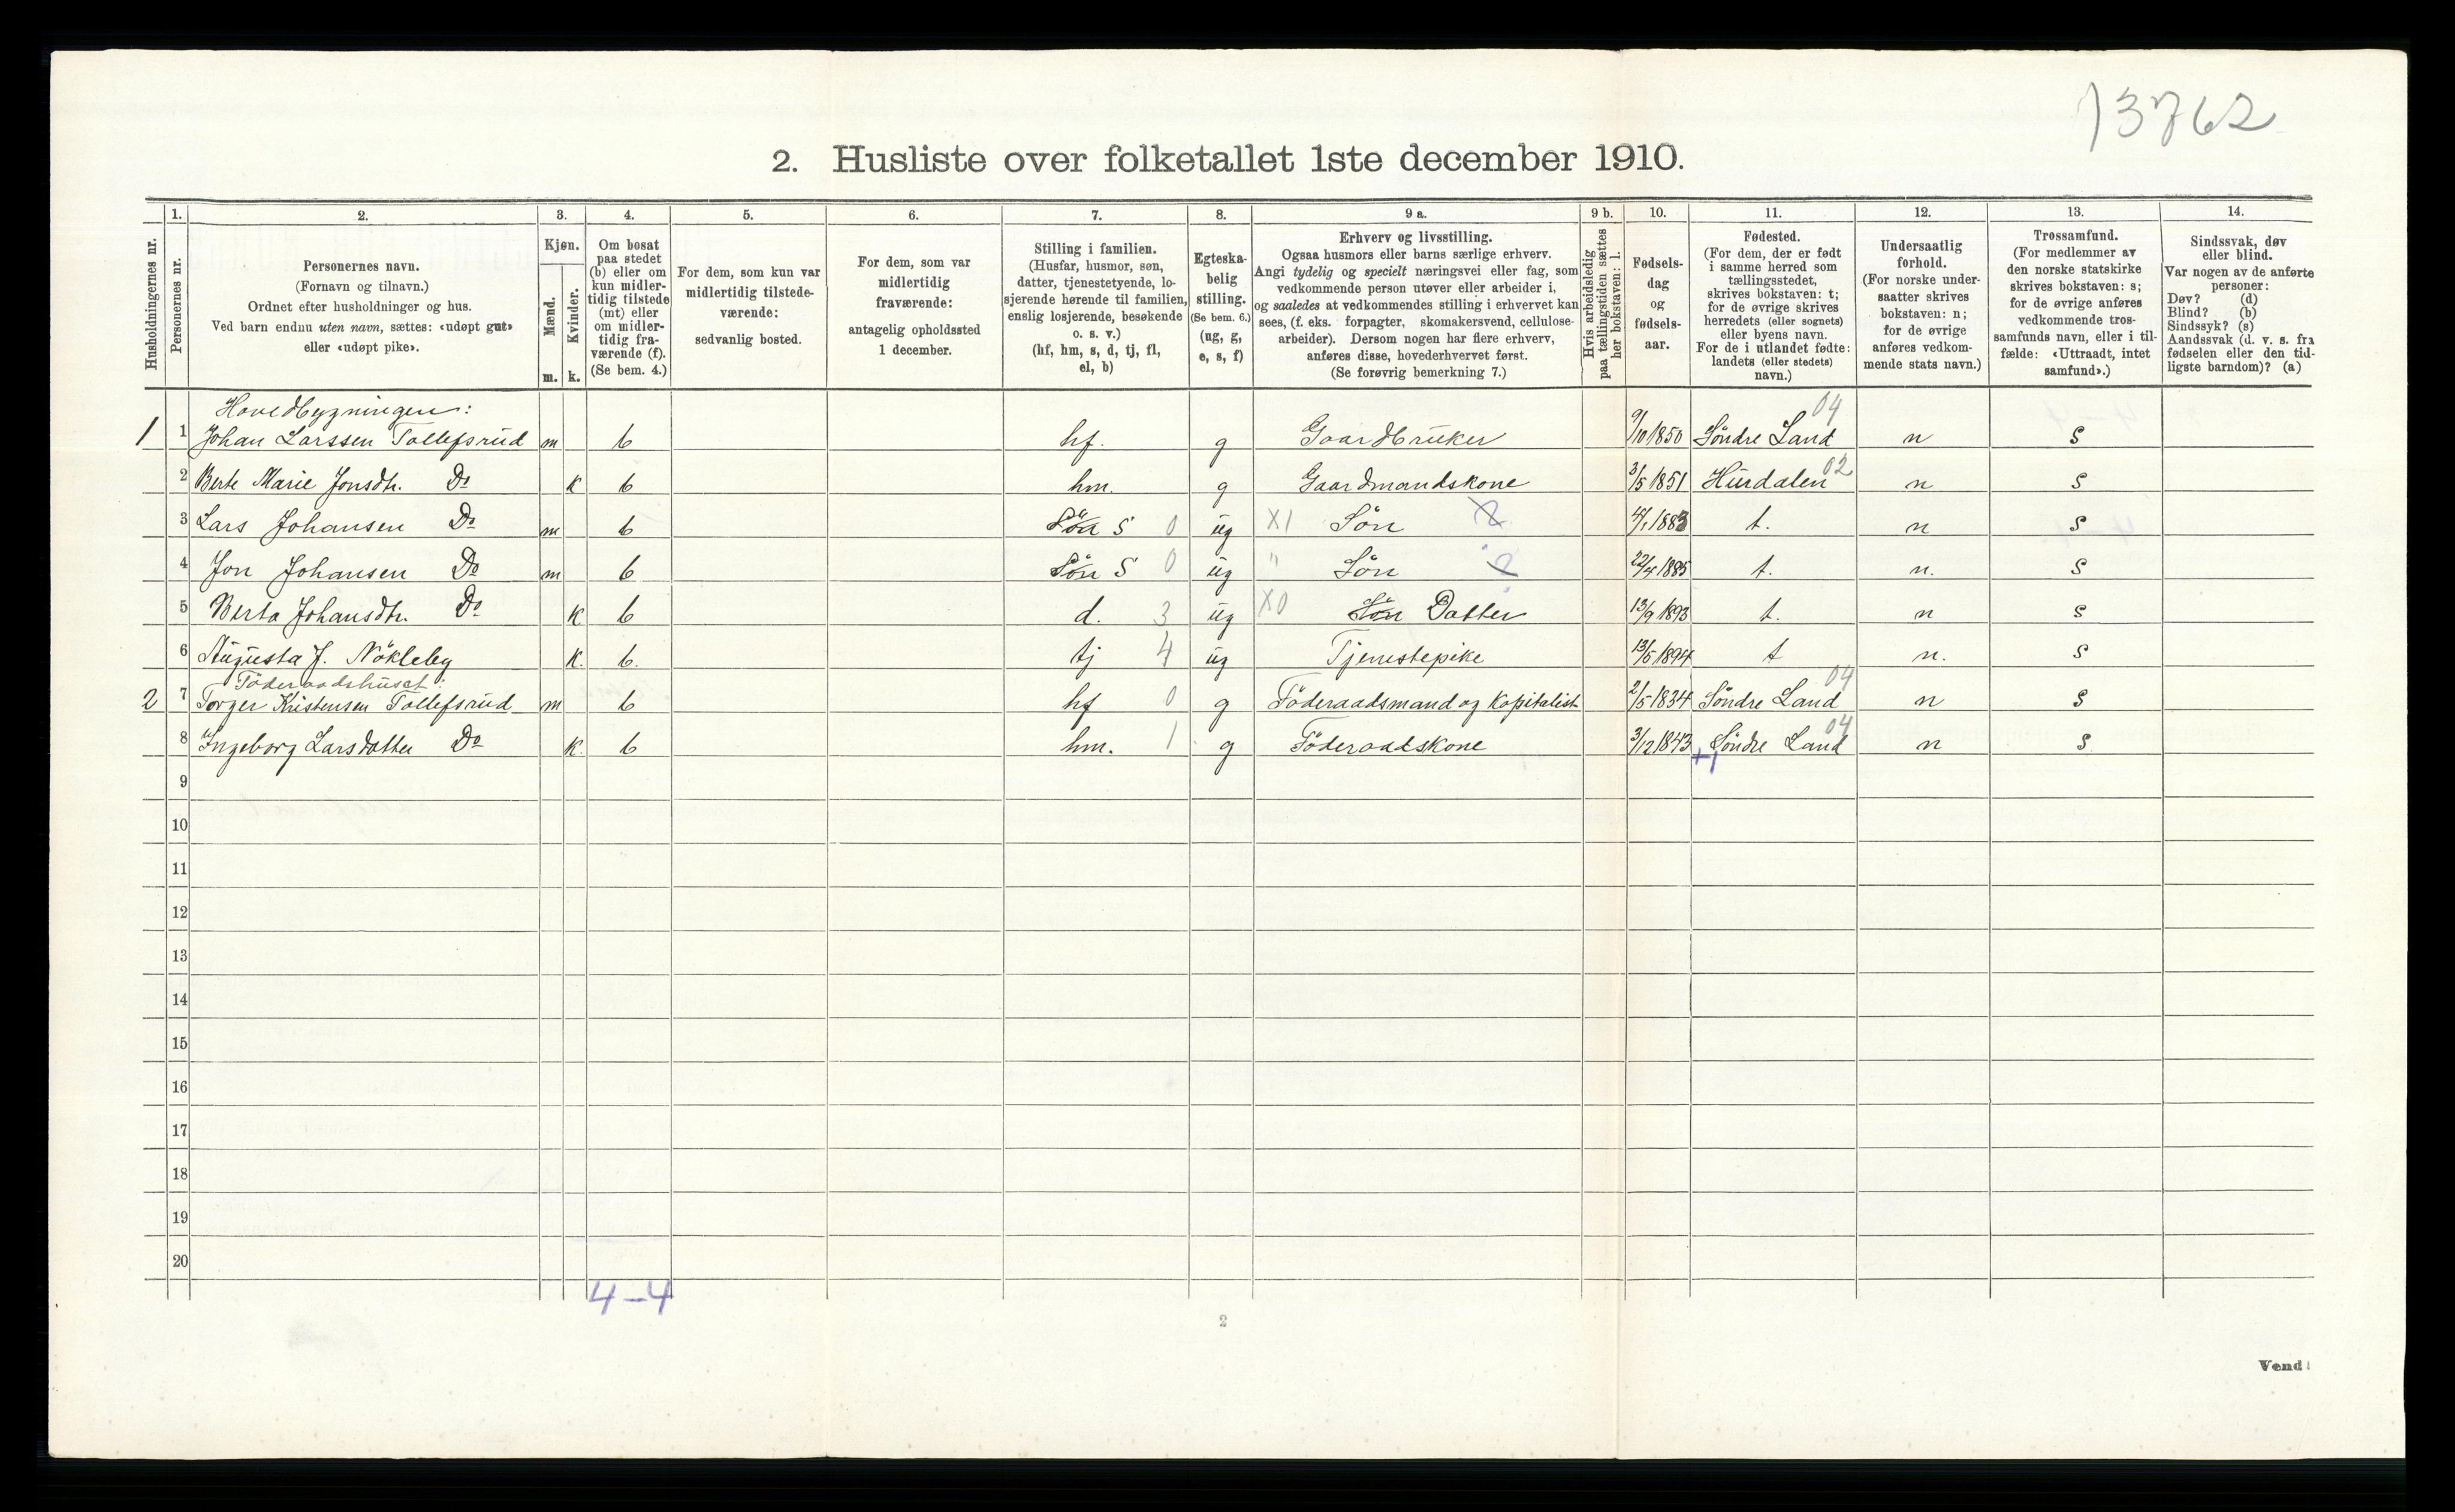 13762
2. Husliste over folketallet 1ste december 1910.
Husholdningernes nr.
1.
Personernes nr.
2.
Personernes navn.
(Fornavn og tilnavn.)
Ordnet efter husholdninger og hus.
Ved barn endnu uten navn, sættes: «udøpt gut»
eller «udøpt pike».
3.
Kjøn.
Mænd.
Kvinder.
m. k.
4.
Om bosat
paa stedet
(b) eller om
kun midler-
tidig tilstede
(mt) eller
om midler-
tidig fra-
værende (f).
(Se bem. 4.)
5.
For dem, som kun var
midlertidig tilstede-
værende:
sedvanlig bosted.
6.
For dem, som var
midlertidig
fraværende:
antagelig opholdssted
1 december.
7.
Stilling i familien.
(Husfar, husmor, søn,
datter, tjenestetyende, lo-
sjerende hørende til familien,
enslig losjerende, besøkende
o. s. v.)
(hf, hm, s, d, tj, fl,
el, b)
8.
Egteska-
belig
stilling.
(Se bem. 6.)
(ug, g,
e, s, f)
9 a.
Erhverv og livsstilling.
Ogsaa husmors eller barns særlige erhverv.
Angi tydelig og specielt næringsvei eller fag, som
vedkommende person utøver eller arbeider i,
og saaledes at vedkommendes stilling i erhvervet kan
sees, (f. eks. forpagter, skomakersvend, cellulose-
arbeider). Dersom nogen har flere erhverv,
anføres disse, hovederhvervet først.
(Se forøvrig bemerkning 7.)
9 b.
Hvis arbeidsledig
paa tællingstiden sættes
her bokstaven: l.
10.
Fødsels-
dag
og
fødsels-
aar.
11.
Fødested.
(For dem, der er født
i samme herred som
tællingsstedet,
skrives bokstaven: t;
for de øvrige skrives
herredets (eller sognets)
eller byens navn.
For de i utlandet fødte:
landets (eller stedets)
navn.)
12.
Undersaatlig
forhold.
(For norske under-
saatter skrives
bokstaven: n;
for de øvrige
anføres vedkom-
mende stats navn.)
13.
Trossamfund.
(For medlemmer av
den norske statskirke
skrives bokstaven: s;
for de øvrige anføres
vedkommende tros-
samfunds navn, eller i til-
fælde: «Uttraadt, intet
samfund».)
14.
Sindssvak, døv
eller blind.
Var nogen av de anførte
personer:
Døv? (d)
Blind? (b)
Sindssyk? (s)
Aandssvak (d. v. s. fra
fødselen eller den tid-
ligste barndom)? (a)
Hovedbygningen: 04
1 1 Johan Larssen Tollefsrud m b hf. g Gaardbruker 9/10 1850 Søndre Land n s
2 Berte Marie Jonsdtr. Do k b hm. g Gaardmandskone 3/5 1851 Hurdalen 02 n s
3 Lars Johansen Do m b Søn s 0 ug X1 Søn 2 4/1 1883 t. n s
4 Jon Johansen Do m b Søn s 0 ug " Søn 2 22/4 1885 t. n. s
5 Berta Johansdtr. Do k b d. 3 ug X0 Søn Datter 13/9 1893 t. n s
6 Augusta J. Nökleby k. b. tj 4 ug Tjenestepike 13/5 1894 t n. s
Föderaadshuset: 04
2 7 Torger Kristensen Tollefsrud m b hf 0 g Föderaadsmand og Kapitalist 2/5 1834 Søndre Land n s
8 Ingeborg Larsdatter Do k. b hm. 1 g Föderaadskone 3/12 1843 Søndre Land 04 n s
+1
9
10
11
12
13
14
15
16
17
18
19
20
4-4
2
Vend!